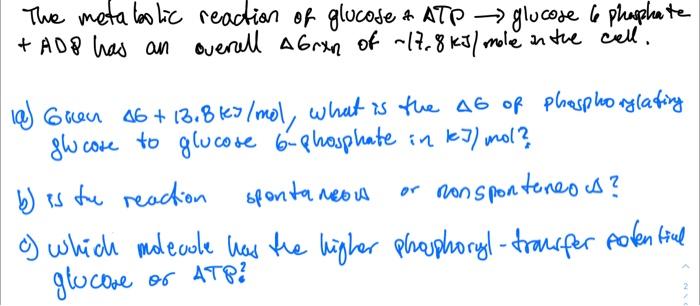 The metabolic reaction of glucose + ATP → glucose 6 phosphate
+ ADP has an overall ΔGrxn of -17.8 kJ/mole in the cell.
1a) Given ΔG + 13.8 kJ/mol, what is the ΔG of phosphorylating
glucose to glucose 6-phosphate in kJ/mol?
b) is the reaction spontaneous or nonspontaneous?
c) which molecule has the higher phosphoryl-transfer potential
glucose or ATP?